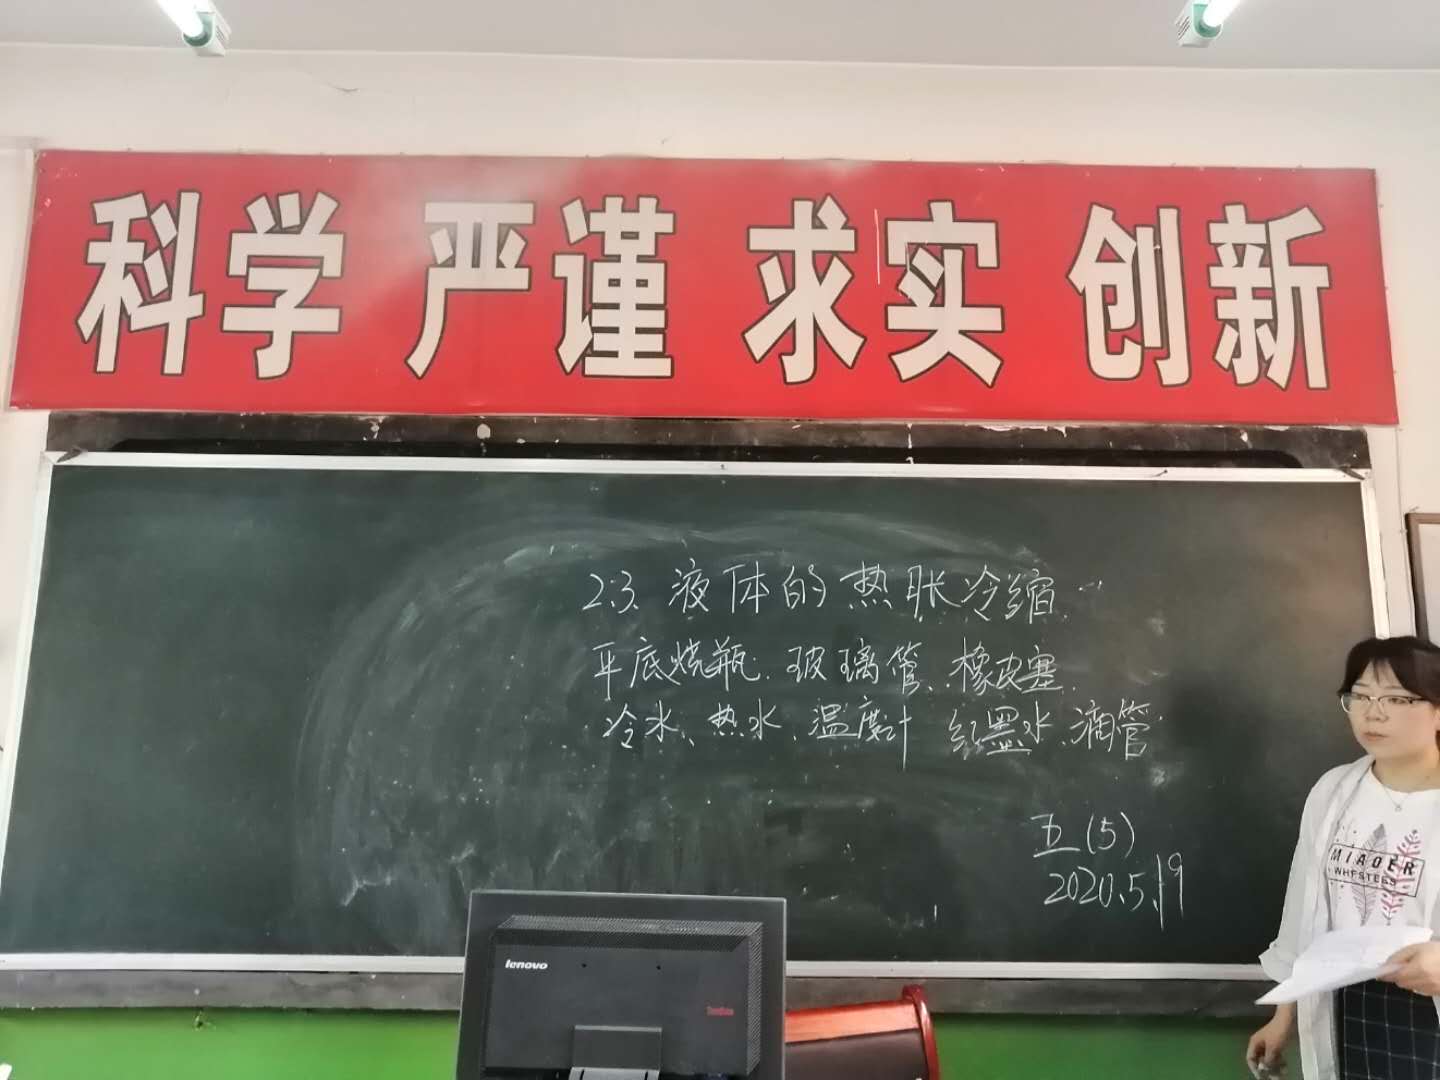 科学 严谨 求实 创新
2.3、液体的热胀冷缩
平底烧瓶、玻璃管、橡皮塞
冷水、热水、温度计 红墨水、滴管
五(5)
2020.5.19
lenovo
MIAOER